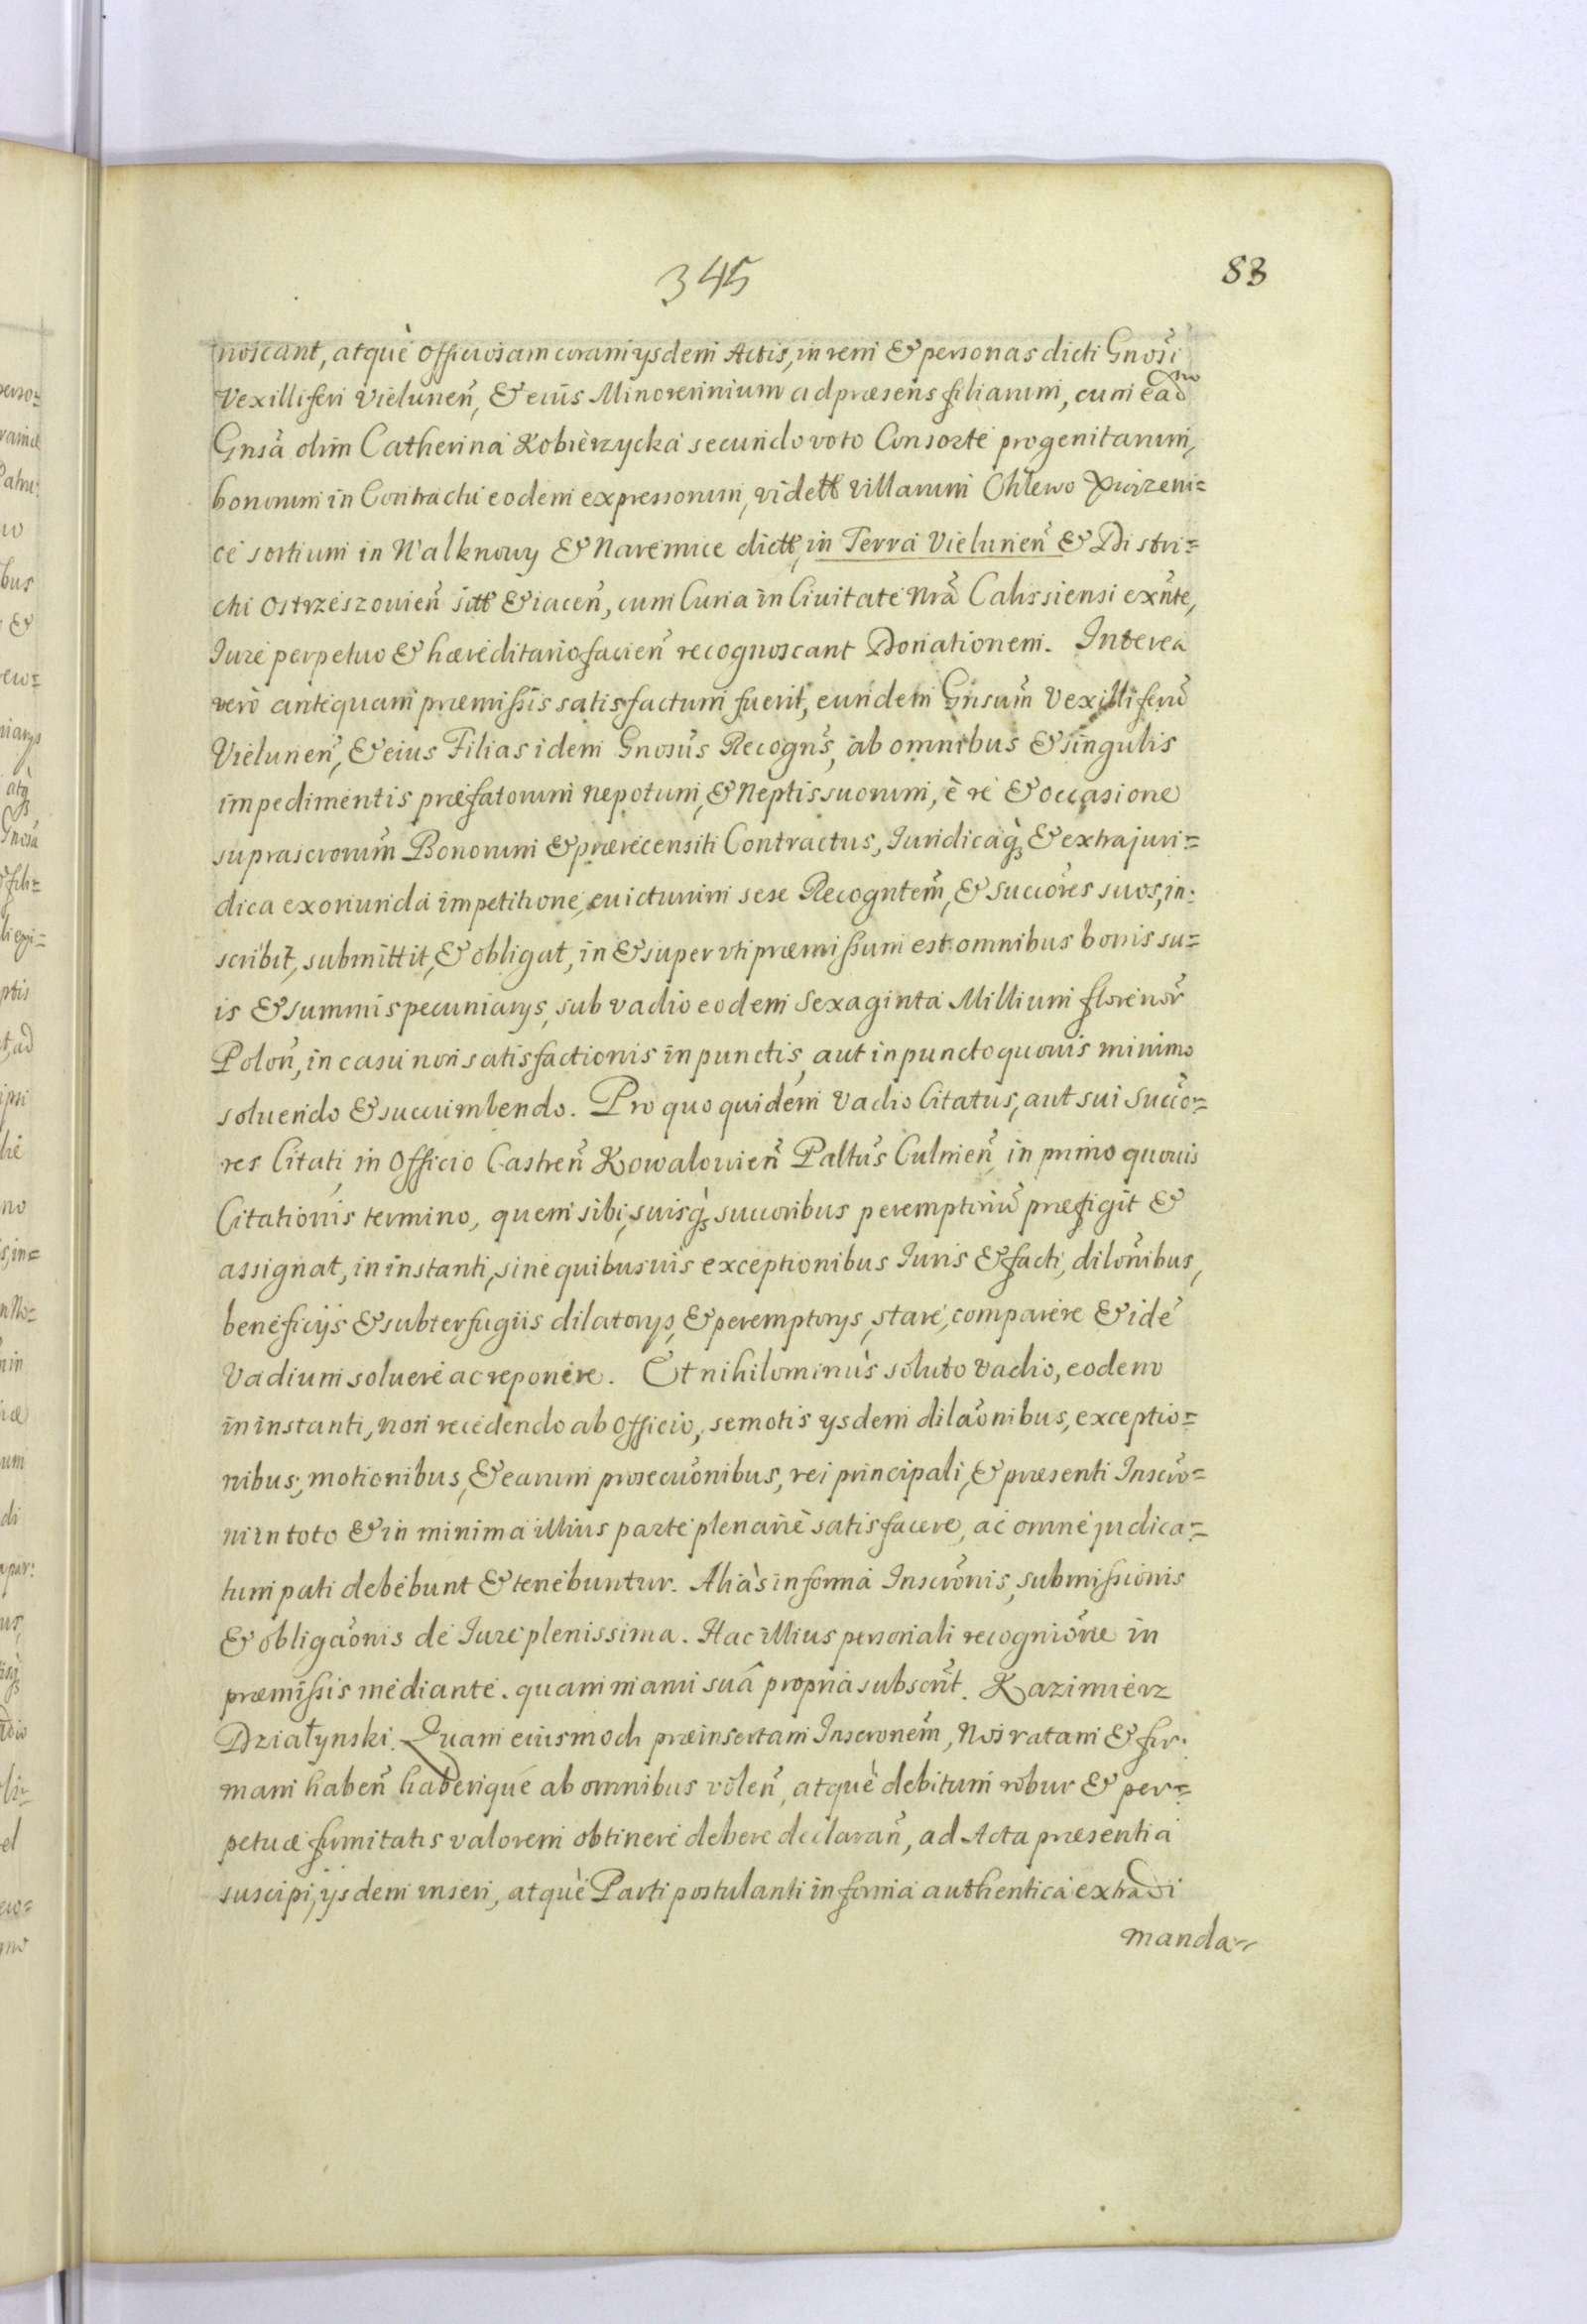 345
83
noscant, atquè officiosam coram ijsdem Actis, in rem & personas dicti Gnosi
Vexilliferi Vielunen̄, & eius Minorennium ad praesens filiarum, cum eadm
Gnsā olim Catherina Kobierzycka secundo voto Consorte progenitarum,
bonorum in Contractu eodem expressorum, vidett villarum Chlewo
ce sortium in Walknowy & Naremice dictt, in Terra Vielunen̄ & Distri=
ctu Ostrzeszouien̄ sitt & iacen̄, cum Curia in Ciuitate Nrā Calissiensi exn̄te,
Iure perpetuo & haereditario facien̄ recognoscant Donationem. Interea
verò antequam praemissis satisfactum fuerit, eundem Gnsum̄ Vexilliferū
Vielunen̄, & eius Filias idem Gnosus̄ Recogns̄, ab omnibus & singulis
impedimentis praefatorum nepotum, & Neptis suorum, è re & occasione
suprascrorum̄ Bonorum & praerecensiti Contractus, Iuridicaq̀ & extrajuri=
dica exoriunda impetitione, euicturum sese Recogntem̄, & succōres suos, in=
scribit, submittit, & obligat, in & super vti praemissum est omnibus bonis su=
is & summis pecuniarijs, sub vadio eodem Sexaginta Millium florenor̄
Polon̄, in casu non satisfactionis in punctis, aut in puncto quouis minimo
soluendo & succumbendo. Pro quo quidem Vadio Citatus, aut sui Succō=
res Citati, in Officio Castren̄ Kowalouien̄ Paltus̄ Culmen̄, in primo quouis
Citationis termino, quem sibi, suisq̀ succoribus peremptoriū praefigit &
assignat, in instanti, sine quibusuis exceptionibus Iuris & facti, dilōnibus,
beneficijs & subterfugiis dilatorijs, & peremptorijs, stare, comparere & idē
Vadium soluere ac reponere. Et nihilominùs soluto vadio, eodem
in instanti, non recedendo ab officio, semotis ijsdem dilāonibus, exceptio=
nibus, motionibus, & earum prosecūonibus, rei principali, & praesenti Inscrō=
ni in toto & in minima illius parte plenariè satisfacere, ac omne judica=
tum pati debebunt & tenebuntur. Aliàs in forma Inscrōnis, submissionis
& obligāonis de Iure plenissima. Hac illius personali recogniōne in
praemissis mediante. quam manu suâ propria subscrit̄. Kazimierz
Działynski. Quam eiusmodi praeinsertam Inscronem̄, Nos ratam & fir=
mam haben̄ haberique ab omnibus volen̄, atquè debitum robur & per=
petuae firmitatis valorem obtinere debere declaran̄, ad Acta praesentia
suscipi, ijsdem inseri, atquè Parti postulanti in forma authentica extradi
manda=